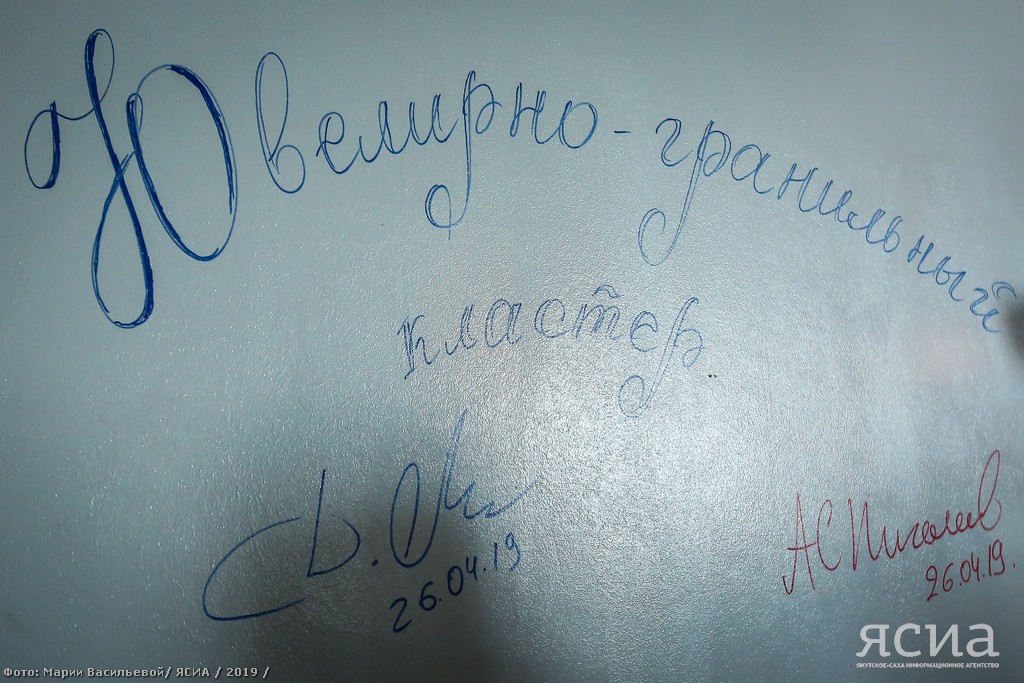 Ювелирно-гранильный
кластер
26.04.19
АС Пиголев
26.04.19.
ЯСИА
ЯКУТСКОЕ-САХА ИНФОРМАЦИОННОЕ АГЕНТСТВО
Фото: Марии Васильевой/ ЯСИА / 2019 /